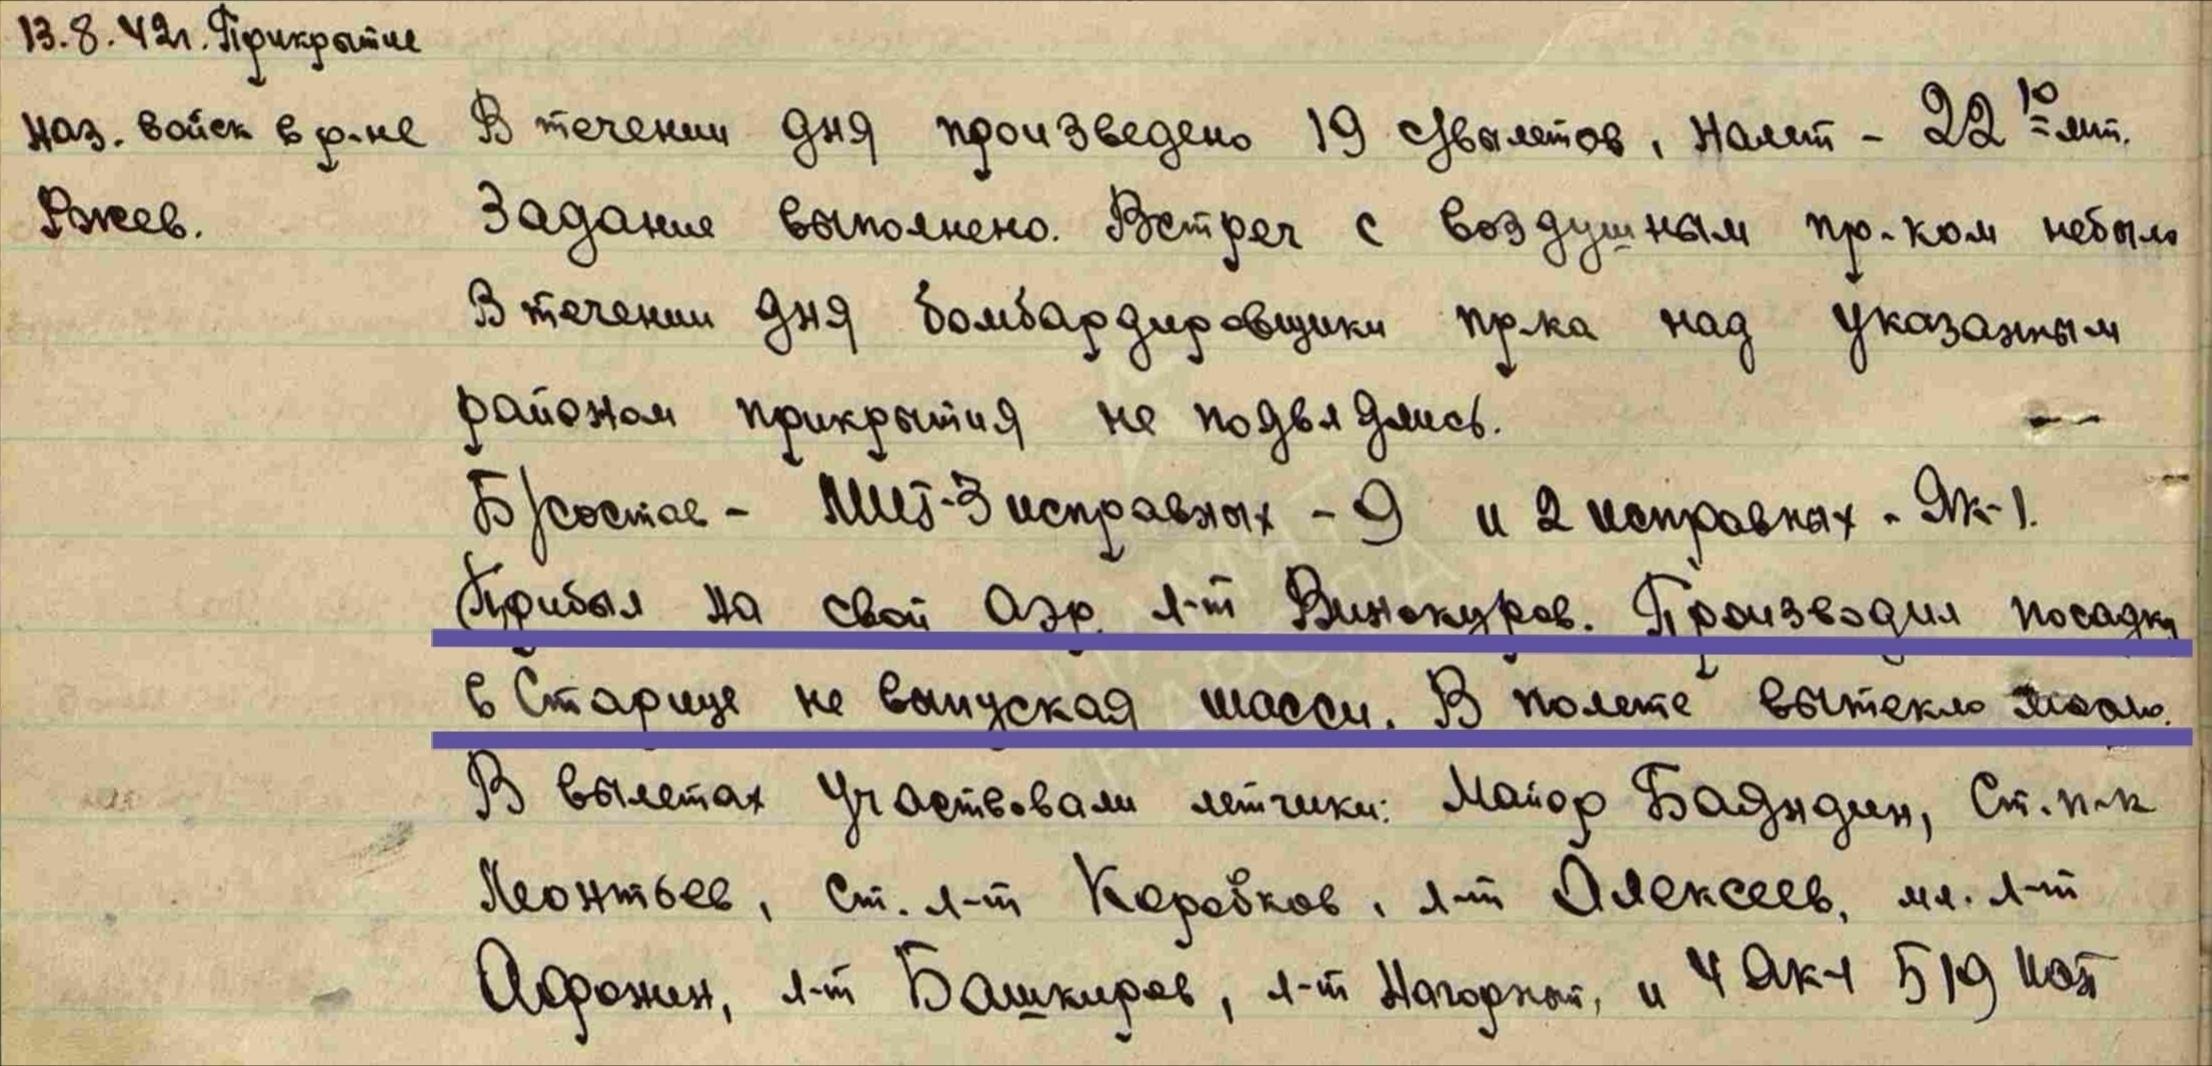 13.8.42г. Прикрытие
наз. войск в р-не
Ржев.
В течении дня произведено 19 с/вылетов, налет - 22 10 = мт.
Задание выполнено. Встреч с воздушным пр-ком небыло
В течении дня бомбардировщики пр-ка над указанным
районом прикрытия не подвлялись.
Б/состав - МИГ-3 исправных - 9 и 2 исправных - Як-1.
Прибыл на свой аэр. л-т Винокуров. Производил посадку
в Старице не выпуская шасси. В полете вытекло масло.
В вылетах участвовали летчики: Майор Баяндин, Ст. п-к
Леонтьев, ст. л-т Коробков, л-т Алексеев, мл. л-т
Афонин, л-т Башкиров, л-т Нагорный, и 4 Як-1 519 иап